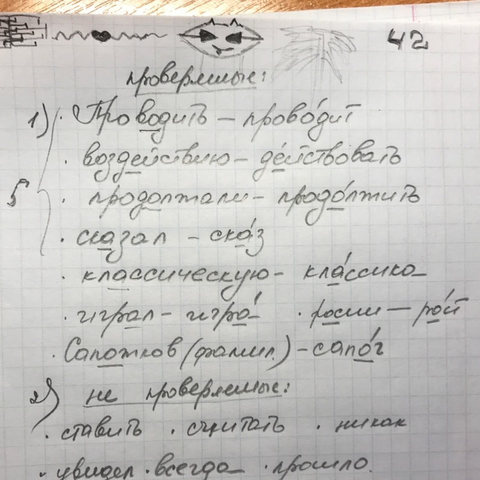 42
проверяемые:
1) · Проводить – провóдит
· воздействию – дéйствовать
5 · продолжали – продóлжить
· сказал – скáз
· классическую – клáссика
· играл – игрá · росли — рóй
· Сапожков (фамил.) – сапóг
2) не проверяемые:
· ставить · считать · никак
· увидел · всегда · прошло.